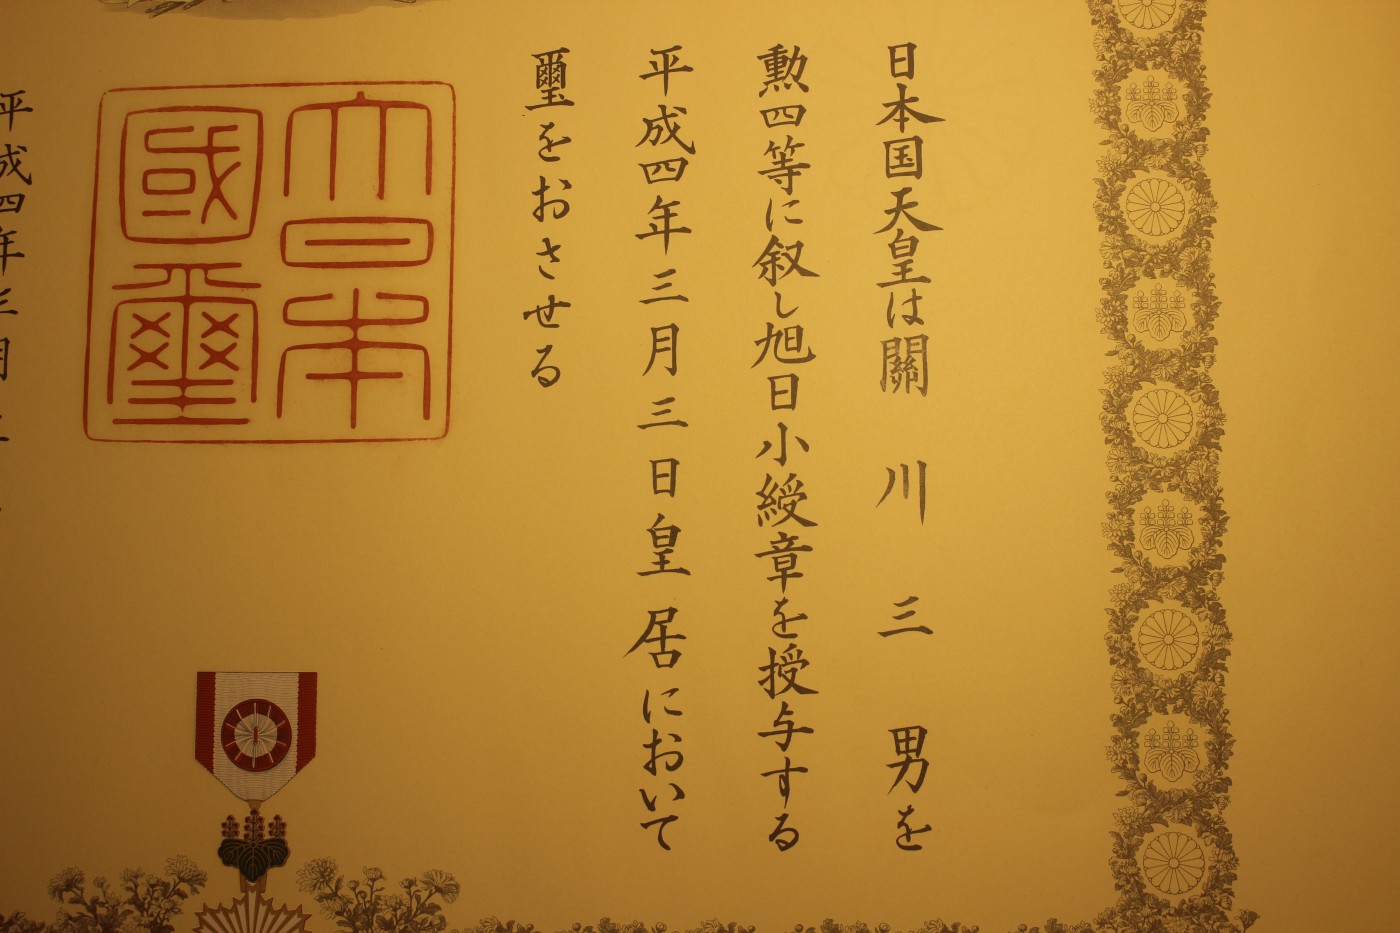 日本国天皇は關川三男を
勲四等に叙し旭日小綬章を授与する
平成四年三月三日皇居において
璽をおさせる
大日本國璽
平成四年三月三